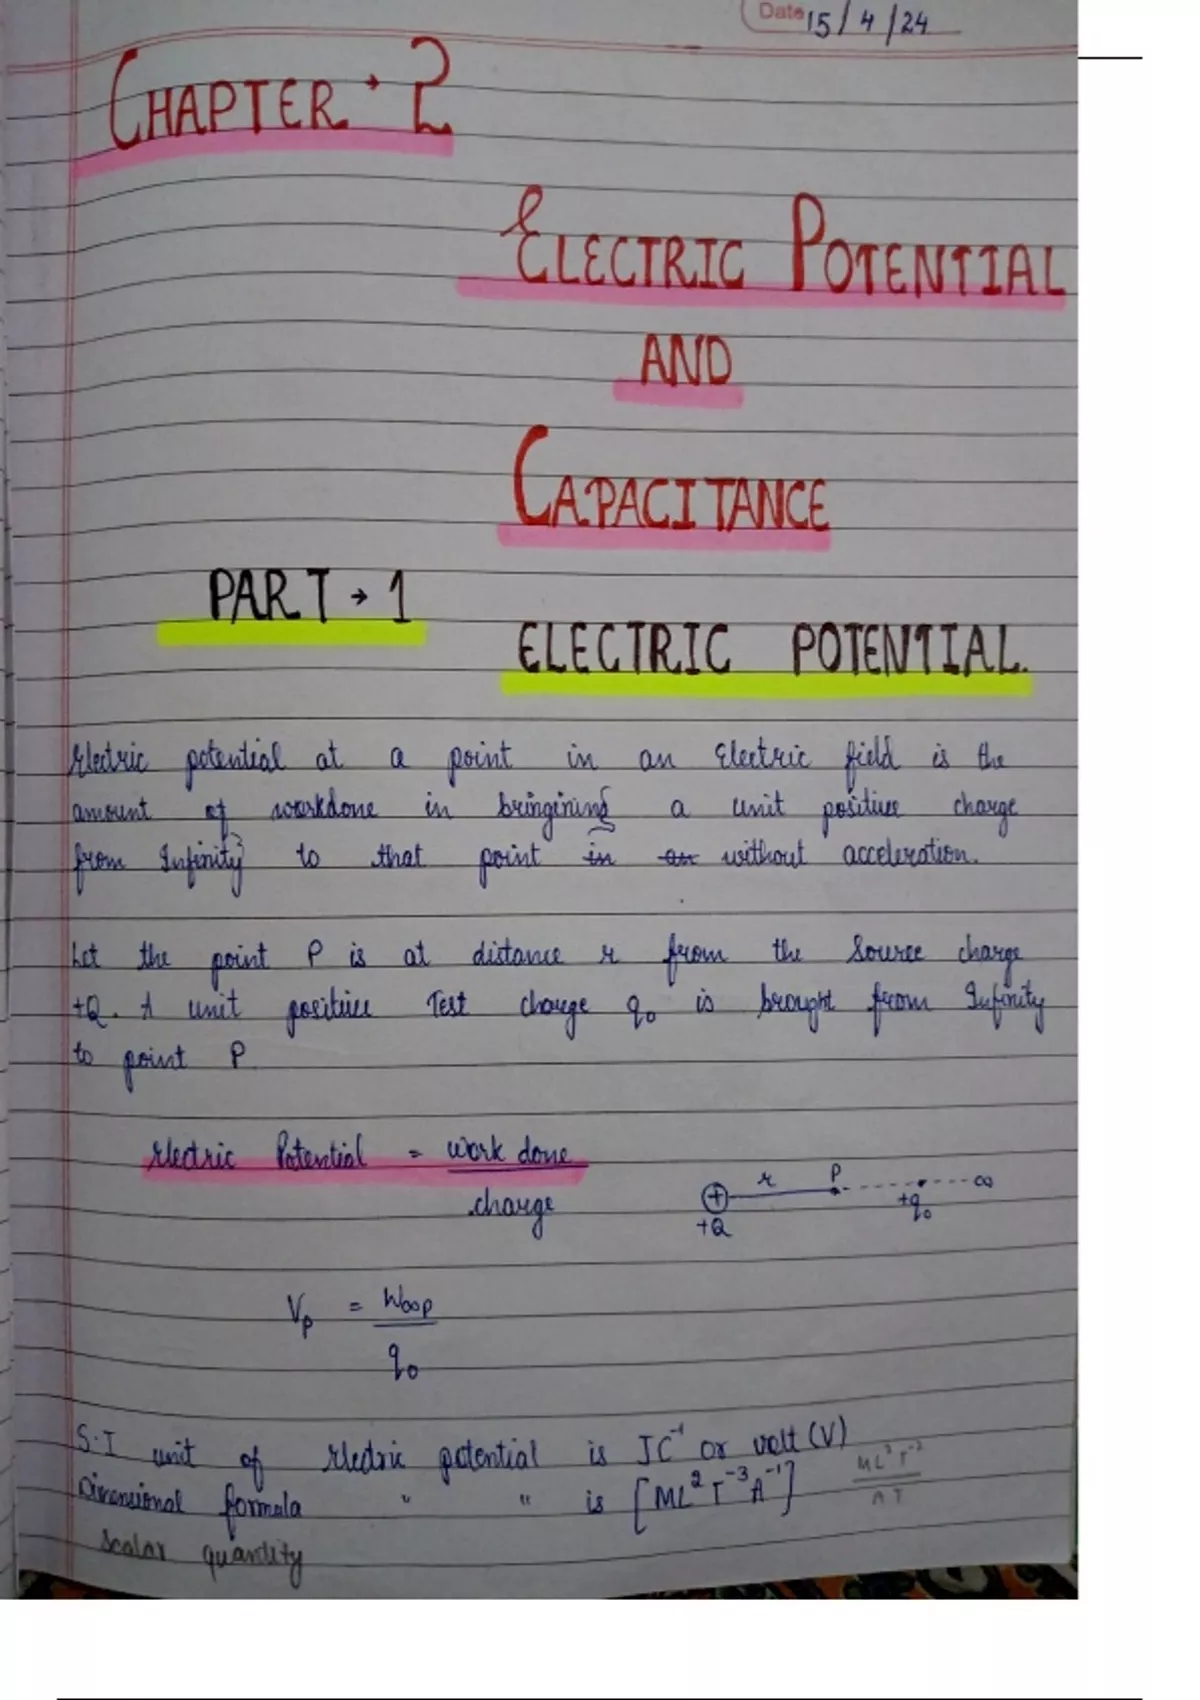 Date 15/4/24
CHAPTER → 2
ELECTRIC POTENTIAL
AND
CAPACITANCE
PART → 1
ELECTRIC POTENTIAL.
Electric potential at a point in an Electric field is the
amount of workdone in bringining a unit positive charge
from Infinity to that point in an without acceleration.
Let the point P is at distance r from the Source charge
+Q. A unit positive Test charge q₀ is brought from Infinity
to point P.
Electric Potential = work done
charge
r P ∞
+Q +q₀
Vp = W∞p
q₀
S.I unit of Electric potential is JC⁻¹ or volt (V)
Dimensional formula " " is [ML²T⁻³A⁻¹]
ML²T⁻²
AT
Scalar quantity